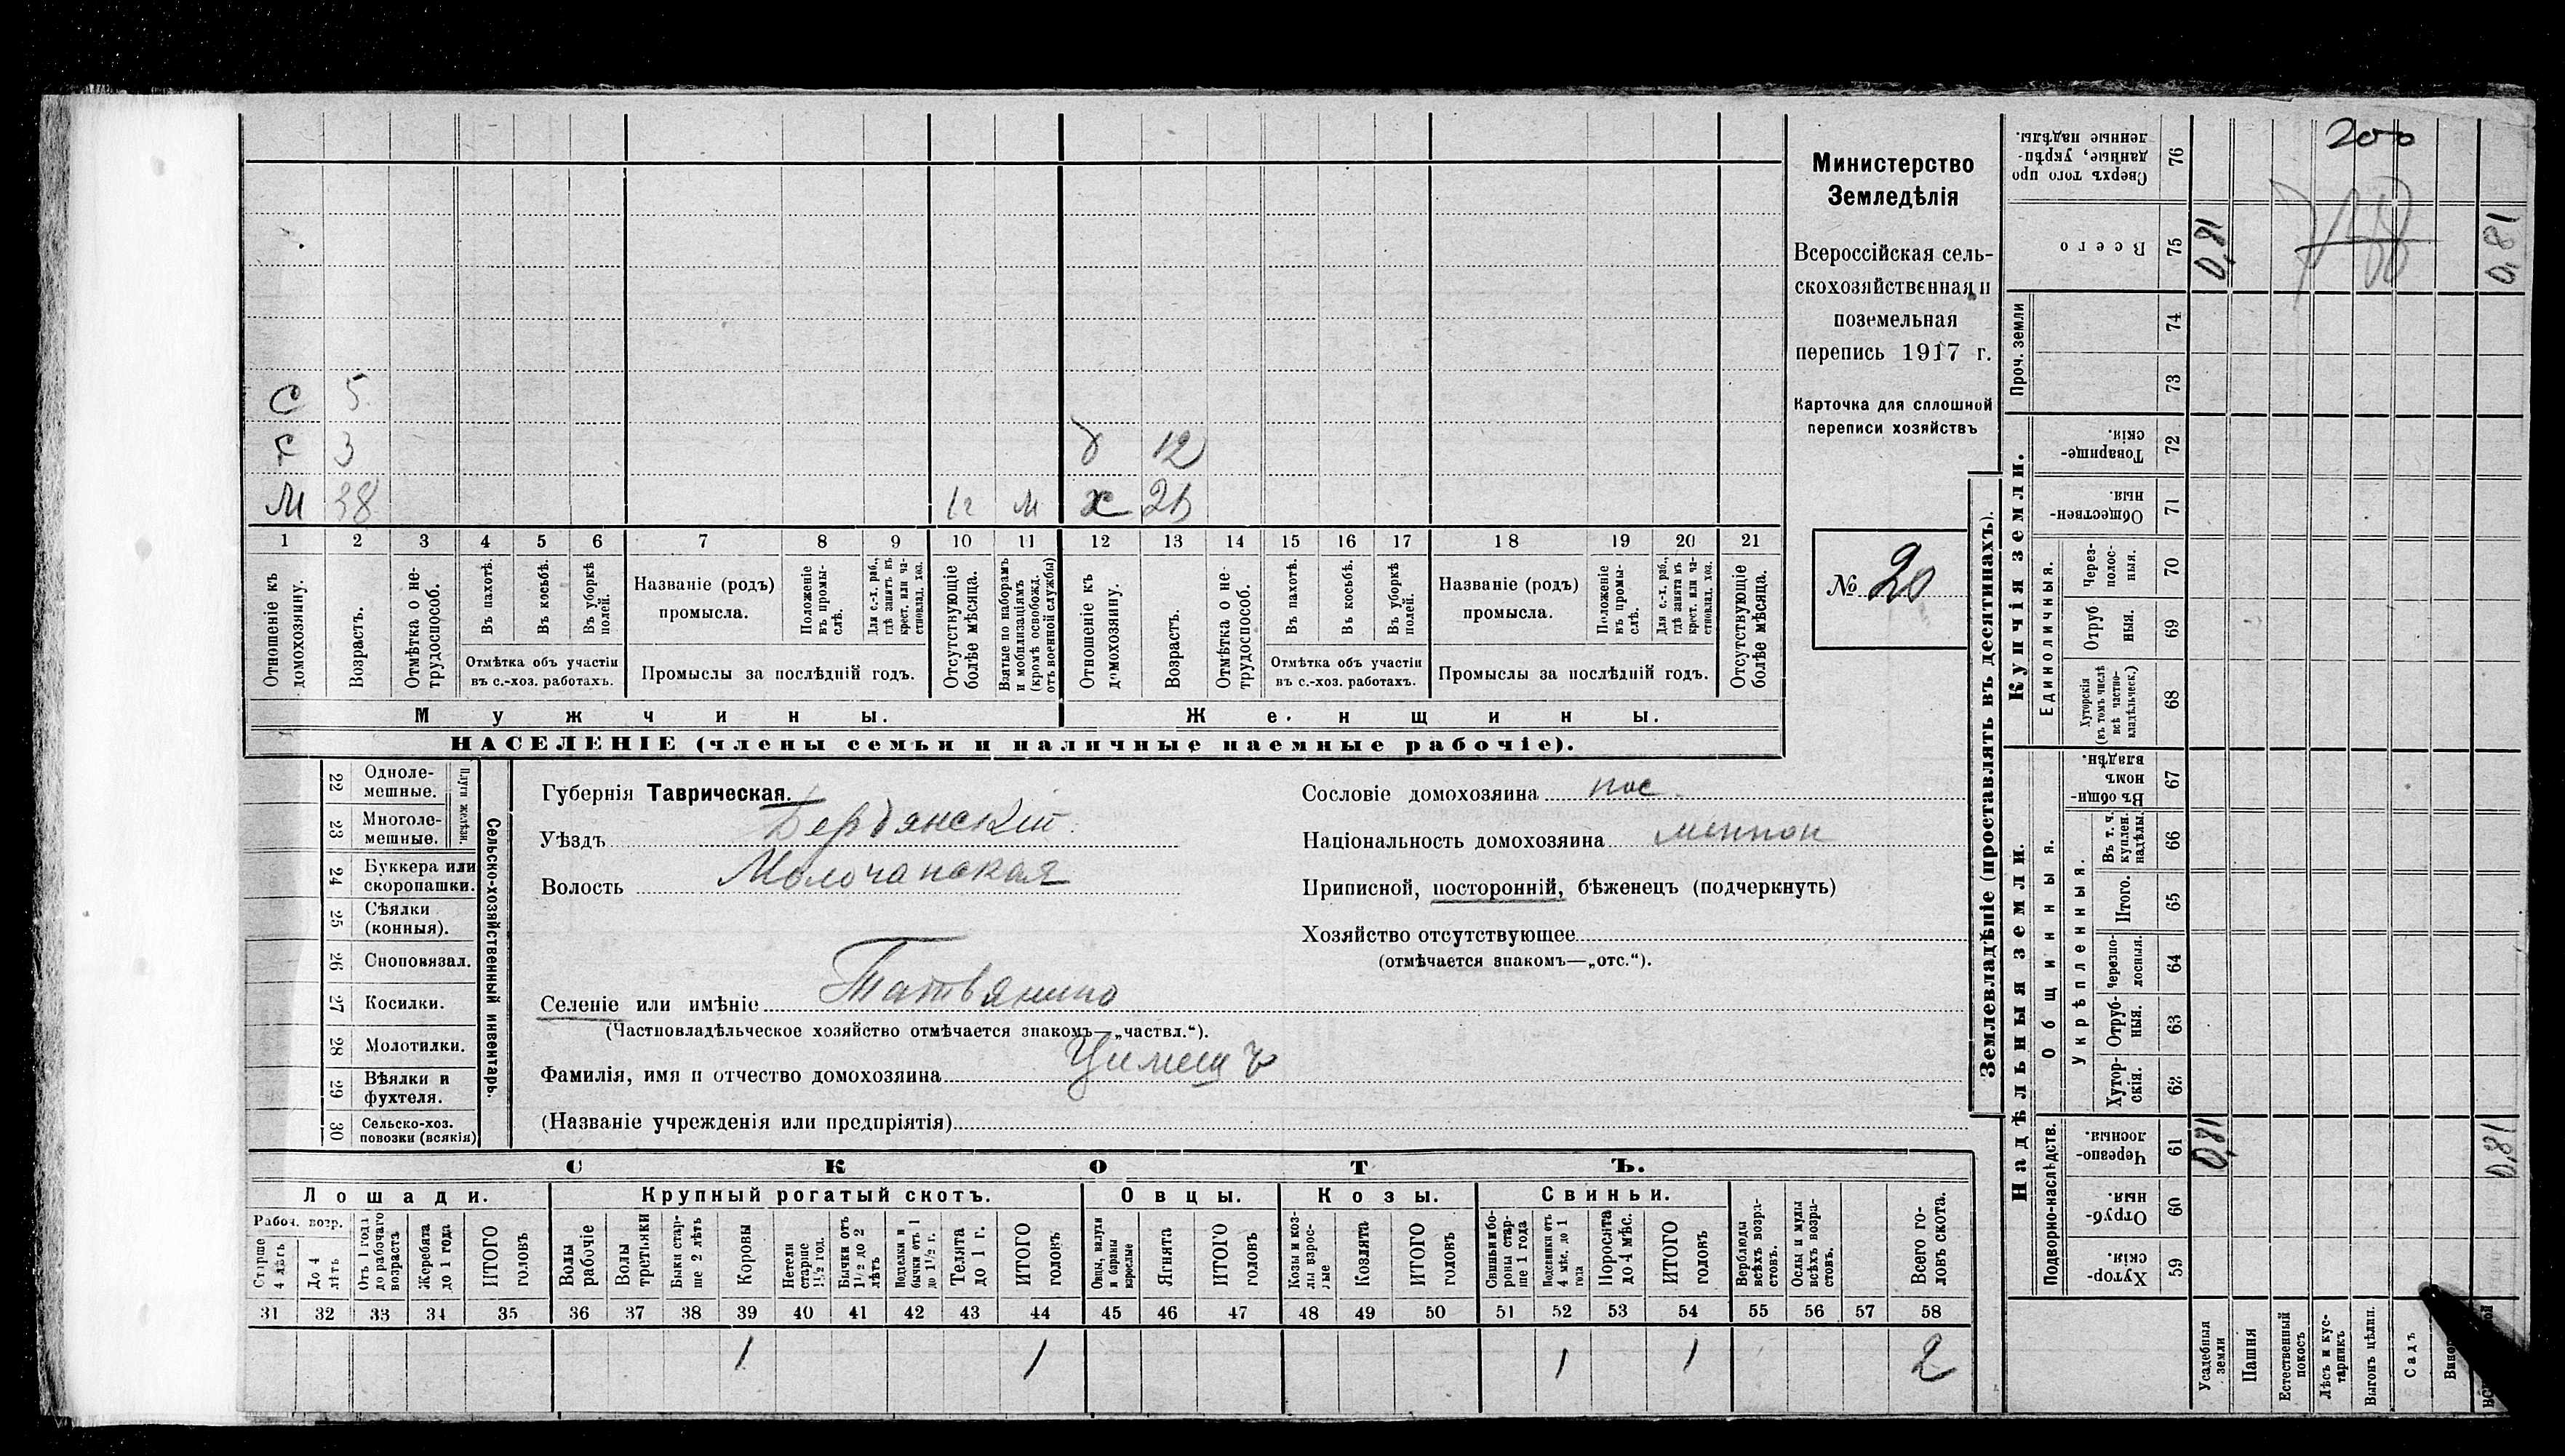 С 5
С 3 д 12
М 38 1г м х
1 2 3 4 5 6 7 8 9 10 11 12 13 14 15 16 17 18 19 20 21
Отношеніе къ домохозяину.
Возрастъ.
Отмѣтка о не-трудоспособ.
Въ пахотѣ.
Въ косьбѣ.
Въ уборкѣ полей.
Отмѣтка объ участіи въ с.-хоз. работахъ.
Названіе (родъ) промысла.
Положеніе въ промы-слѣ.
Для с.-х. раб., гдѣ занятъ въ крест. или ча-стновлад. хоз.
Промыслы за послѣдній годъ.
Отсутствующіе болѣе мѣсяца.
Взятые по наборамъ и мобилизаціямъ (кромѣ освобожд. отъ военной службы)
Отношеніе къ домохозяину.
Возрастъ.
Отмѣтка о не-трудоспособ.
Въ пахотѣ.
Въ косьбѣ.
Въ уборкѣ полей.
Отмѣтка объ участіи въ с.-хоз. работахъ.
Названіе (родъ) промысла.
Положеніе въ промы-слѣ.
Для с.-х. раб., гдѣ занятъ въ крест. или ча-стновлад. хоз.
Промыслы за послѣдній годъ.
Отсутствующіе болѣе мѣсяца.
Мужчины. Женщины.
НАСЕЛЕНІЕ (члены семьи и наличные наемные рабочіе).
Министерство
Земледѣлія
Всероссійская сель-
скохозяйственная и
поземельная
перепись 1917 г.
Карточка для сплошной
переписи хозяйствъ
№ 20
22 Одноле-мешные.
23 Многоле-мешные.
Плуги желѣзн.
24 Буккера или скоропашки.
25 Сѣялки (конныя).
26 Сноповязал.
27 Косилки.
28 Молотилки.
29 Вѣялки и фухтеля.
30 Сельско-хоз. повозки (всякія)
Сельско-хозяйственный инвентарь.
Губернія Таврическая.
Уѣздъ Бердянскій
Волость Молочанская
Селеніе или имѣніе
(Частновладѣльческое хозяйство отмѣчается знакомъ—„частвл.“).
Фамилія, имя и отчество домохозяина
(Названіе учрежденія или предпріятія)
Сословіе домохозяина пос.
Національность домохозяина меннон
Приписной, посторонній, бѣженецъ (подчеркнуть)
Хозяйство отсутствующее
(отмѣчается знакомъ—„отс.“).
СКОТЪ.
Лошади. Крупный рогатый скотъ. Овцы. Козы. Свиньи.
Рабоч. возр.
Старше 4 лѣтъ
До 4 лѣтъ
Отъ 1 года до рабочаго возраста
Жеребята до 1 года
ИТОГО головъ
Волы рабочіе
Волы третьяки
Быки стар-ше 2 лѣтъ
Коровы
Нетели старше 1½ год.
Бычки отъ 1½ до 2 лѣтъ
Подтелки и бычки отъ 1 до 1½ г.
Телята до 1 г.
ИТОГО головъ
Овцы, валухи и бараны взрослые
Ягнята
ИТОГО головъ
Козы и коз-лы взрос-лые
Козлята
ИТОГО головъ
Свиньи и бо-ровы стар-ше 1 года
Подсвинки отъ 4 мѣс. до 1 года
Поросята до 4 мѣс.
ИТОГО головъ
Верблюды всѣхъ возра-стовъ.
Ослы и мулы всѣхъ возра-стовъ.
Всего го-ловъ скота.
31 32 33 34 35 36 37 38 39 40 41 42 43 44 45 46 47 48 49 50 51 52 53 54 55 56 57 58
1 1 1 1 2
Землевладѣніе (проставлять въ десятинахъ).
200
Сверхъ того про данные, укрѣп-ленные надѣлы. 76
Всего 75 0,81 0,81
Проч. земли 74
73
Купчія земли.
Товарище-скія. 72
Обществен-ныя. 71
Единоличныя.
Через-полос-ныя. 70
Отруб ныя. 69
Хуторскія (въ томъ числѣ всѣ частно-владѣльческ.) 68
Надѣльныя земли.
Общинныя.
Въ общи-номъ владѣн. 67
Укрѣпленныя.
Въ т. ч. куплен. надѣлы. 66
Итого. 65
Черезпо-лосныя. 64
Отруб-ныя. 63
Хутор-скія. 62
Подворно-наслѣдств.
Черезпо-лосныя. 61 0,81 0,81
Отруб-ныя. 60
Хутор-скія. 59
Усадебныя земли
Пашня
Естественный покосъ
Лѣсъ и кус-тарникъ
Выгонъ цѣлин.
Садъ